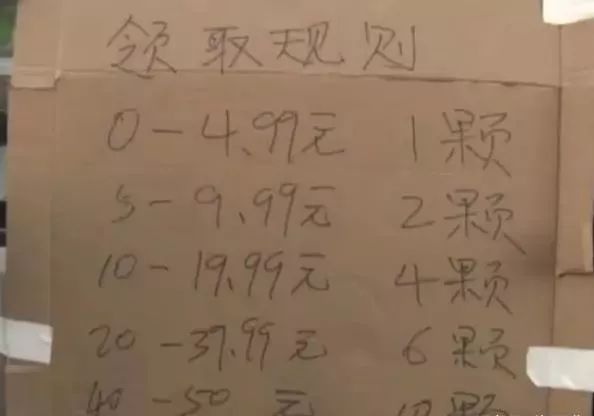 领取规则
0-4.99元 1颗
5-9.99元 2颗
10-19.99元 4颗
20-39.99元 6颗
40-50元 颗